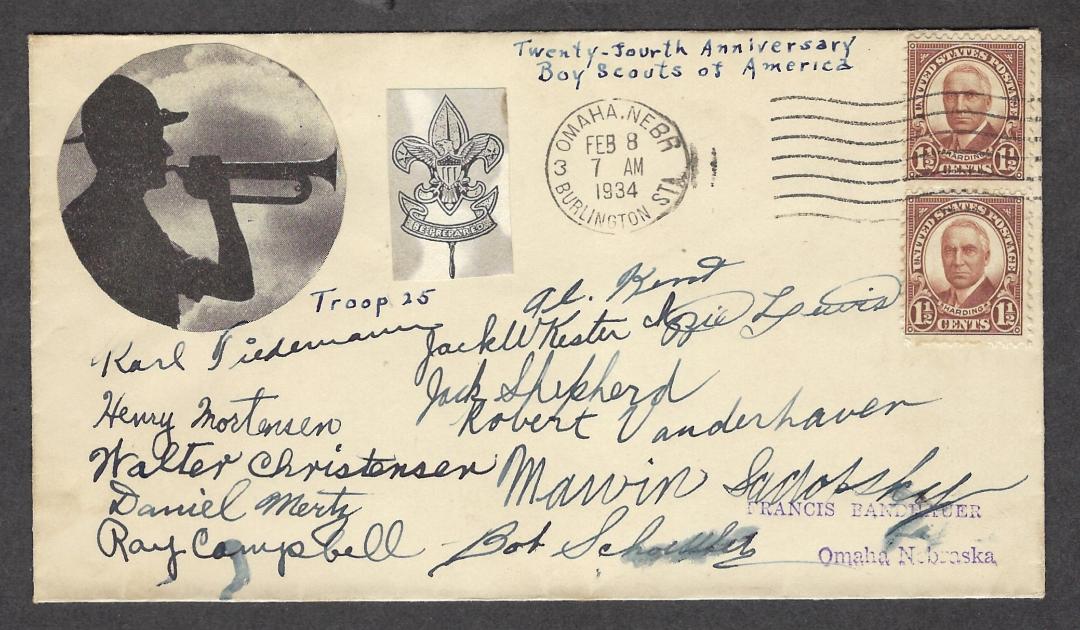 Twenty-Fourth Anniversary
Boy Scouts of America
OMAHA, NEBR
FEB 8
7 AM
1934
3
BURLINGTON STA
UNITED STATES POSTAGE
HARDING
1½ CENTS 1½
UNITED STATES POSTAGE
HARDING
1½ CENTS 1½
BE PREPARED
Troop 25
Al. Kent
Karl Tiedemann
Jack W Kester
Ozzie Lewis
Jack Shepherd
Henry Mortensen
Robert Vanderhaven
Walter Christensen
Marvin Sadofsky
Daniel Mertz
FRANCIS BANDHAUER
Ray Campbell
Bob
Omaha Nebraska